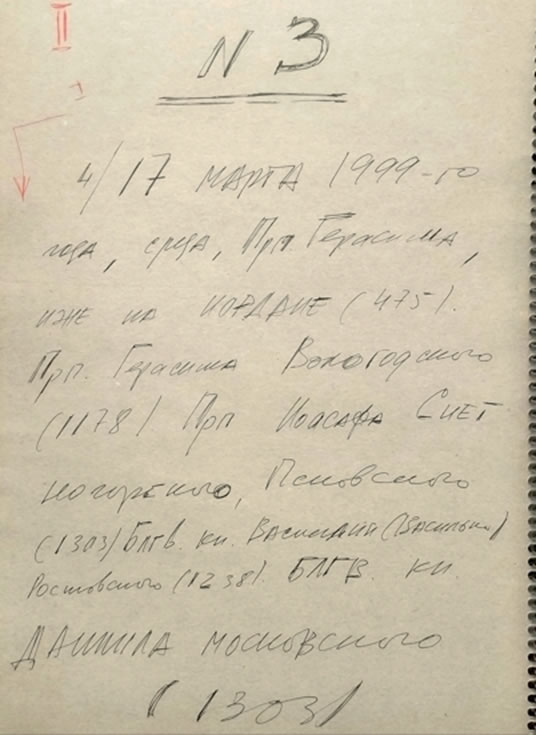 II
N 3
4/17 МАРТА 1999-го
года, среда, Прп. Герасима,
иже на ИОРДАНЕ (475).
Прп. Герасима Вологодского
(1178) Прп Иоасафа Снет
ногорского, Псковского
(1303) Блгв. кн. Василия (Василько)
Ростовского (1238). БЛГВ. кн.
ДАНИИЛА МОСКОВСКОГО
(1303)